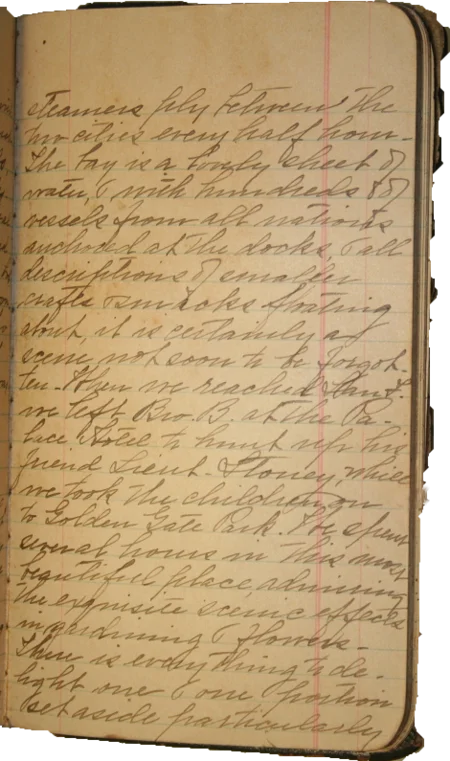 steamers ply between the
two cities every half hour.
The bay is a lovely sheet of
water, & with hundreds of
vessels from all nations
anchored at the docks, & all
descriptions of smaller
crafts & smacks floating
about, it is certainly a
scene not soon to be forgot-
ten. When we reached San F.
we left Bro. B. at the Pa-
lace Hotel to hunt up his
friend Lieut. Stoney, while
we took the children on
to Golden Gate Park. We spent
several hours in this most
beautiful place, admiring
the exquisite scenic effects
in gardening & flowers.
There is everything to de-
light one & one portion
set aside particularly